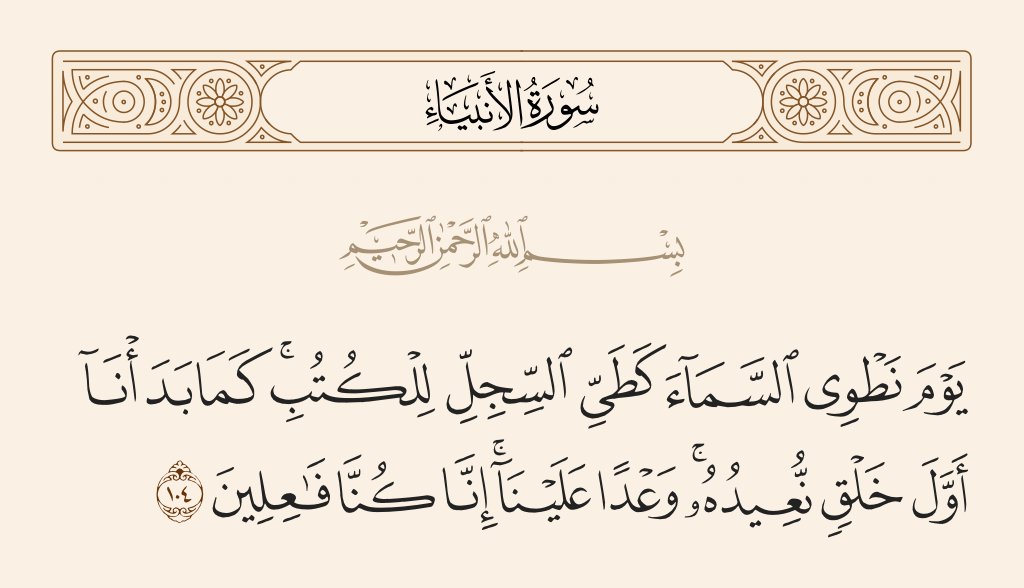 سُورَةُ الأَنبيَاءِ
بِسْمِ ٱللَّهِ ٱلرَّحْمَٰنِ ٱلرَّحِيمِ
يَوْمَ نَطْوِى ٱلسَّمَآءَ كَطَىِّ ٱلسِّجِلِّ لِلْكُتُبِ ۚ كَمَا بَدَأْنَآ
أَوَّلَ خَلْقٍ نُّعِيدُهُۥ ۚ وَعْدًا عَلَيْنَآ ۚ إِنَّا كُنَّا فَٰعِلِينَ ١٠٤